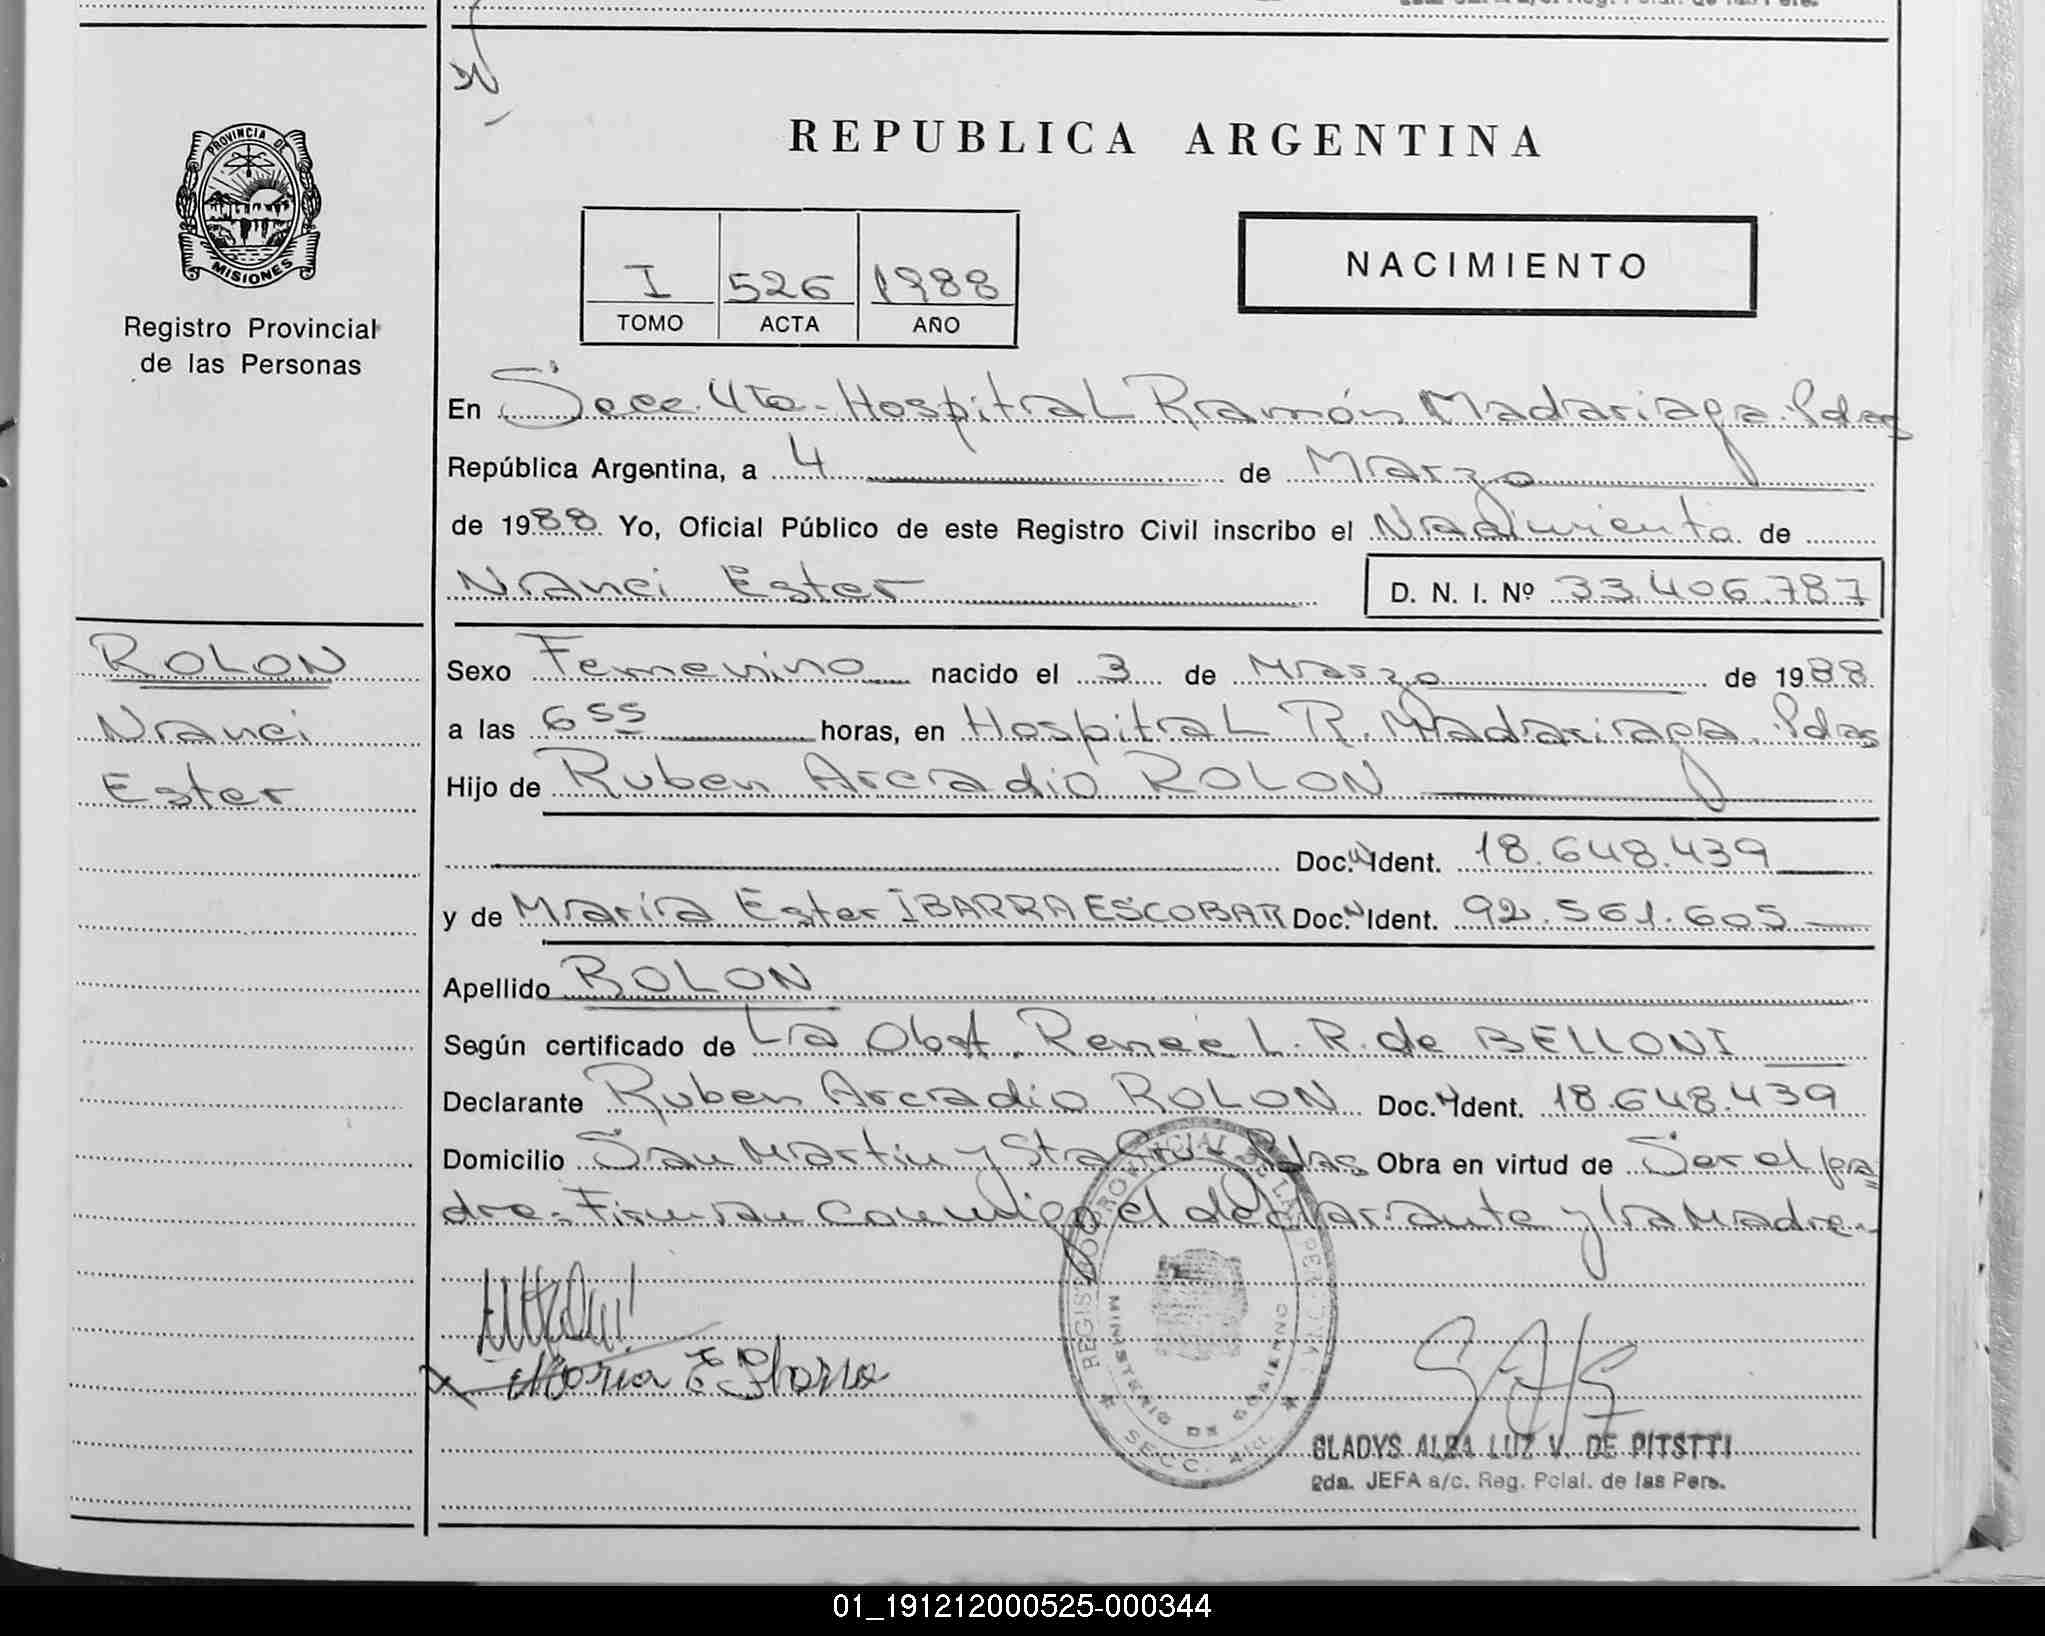 PROVINCIA DE
MISIONES
Registro Provincial
de las Personas
REPUBLICA ARGENTINA
I 526 1988
TOMO ACTA AÑO
NACIMIENTO
En Secc. 4ta. Hospital Ramón Madariaga. Pdas
República Argentina, a 4 de Marzo
de 1988 Yo, Oficial Público de este Registro Civil inscribo el Nacimiento de
Nanci Ester D. N. I. Nº 33.406.787
ROLON
Nanci
Ester
Sexo Femenino nacido el 3 de Marzo de 1988
a las 6 55 horas, en Hospital R. Madariaga. Pdas
Hijo de Ruben Arcadio ROLON
Doc. Ident. 18.648.439
y de María Ester IBARRA ESCOBAR Doc. Ident. 92.561.605
Apellido ROLON
Según certificado de La Obst. Renée L. R. de BELLONI
Declarante Ruben Arcadio ROLON Doc. Ident. 18.648.439
Domicilio San Martin y Sta Cruz Pdas Obra en virtud de Ser el pa
dre. Firman conmigo el declarante y la Madre.
REGISTRO PROVINCIAL DE LAS PERSONAS
MINISTERIO DE GOBIERNO
SECC. 4ta.
GLADYS ALBA LUZ V. DE PITSTTI
2da. JEFA a/c. Reg. Pcial. de las Pers.
01_191212000525-000344